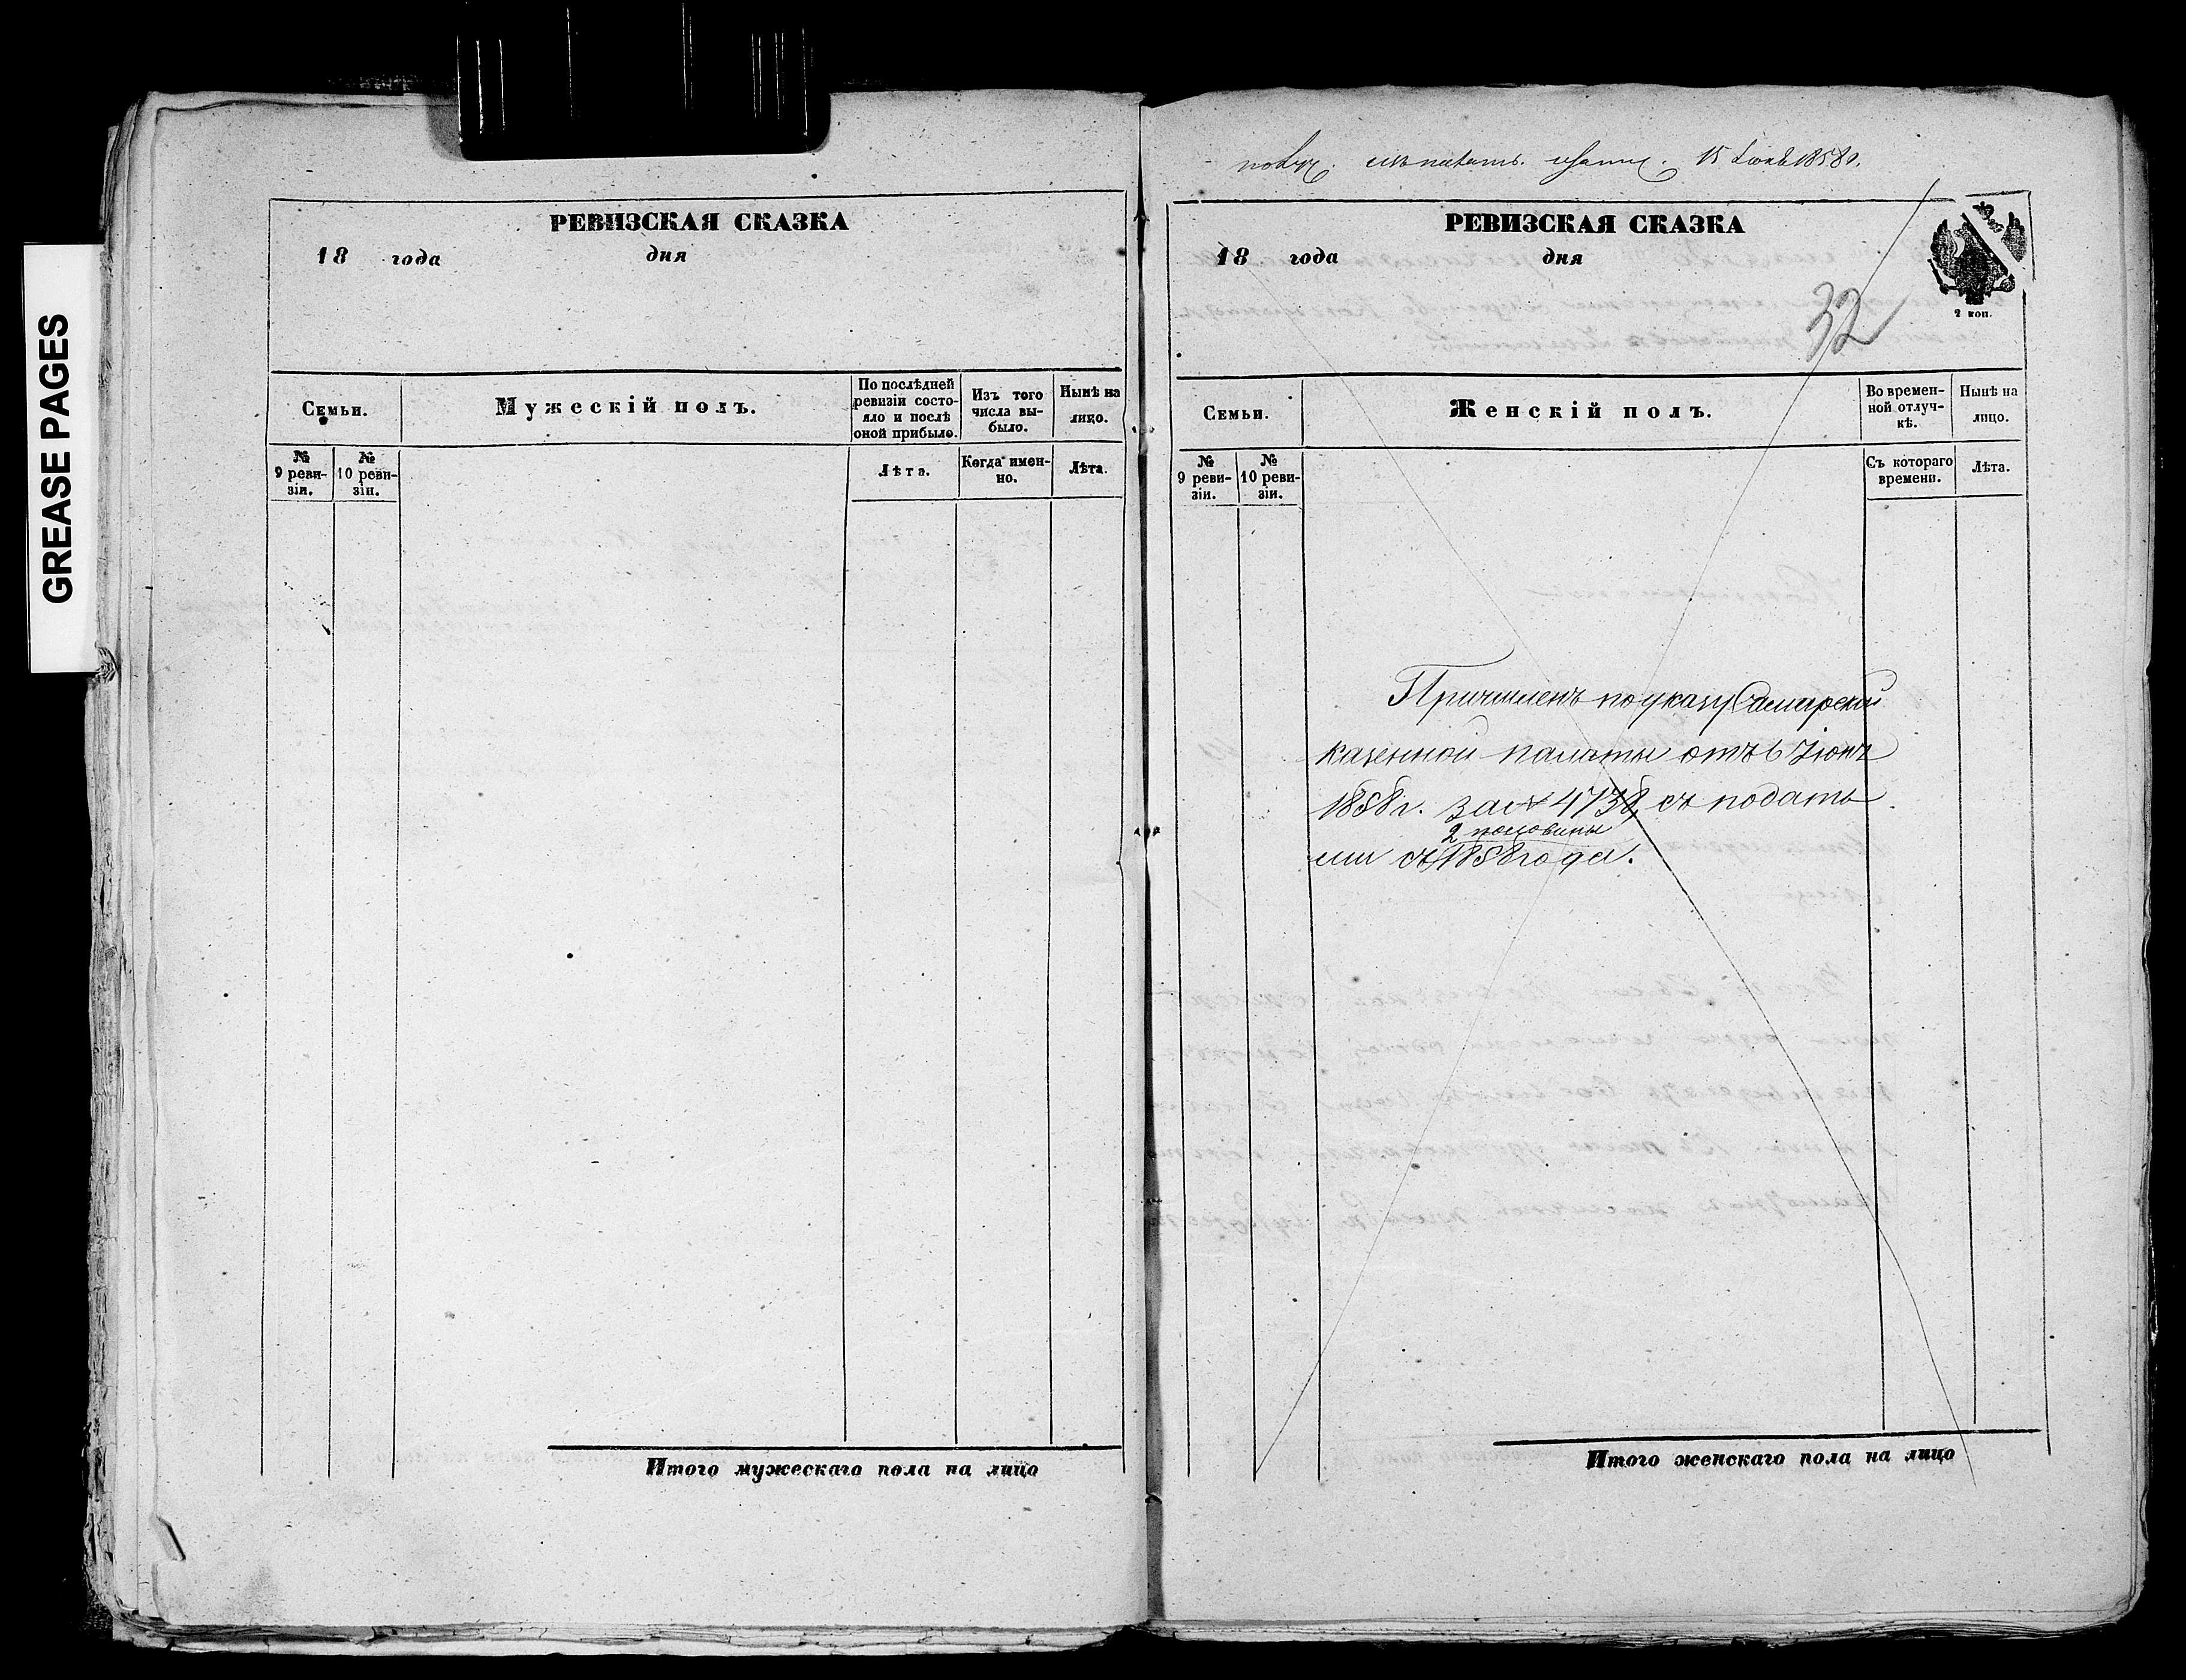 GREASE PAGES
РЕВИЗСКАЯ СКАЗКА
18 года дня
Семьи.
Мужескій полъ.
По послѣдней
ревизіи состо-
яло и послѣ
оной прибыло.
Изъ того
числа вы-
было.
Нынѣ на
лицо.
№
9 реви-
зіи.
№
10 реви-
зіи.
Лѣта.
Когда имен-
но.
Лѣта.
Итого мужескаго пола на лицо
15 Іюня 1858г.
РЕВИЗСКАЯ СКАЗКА
18 года дня
2 коп.
32
Семьи.
Женскій полъ.
Во времен-
ной отлуч-
кѣ.
Нынѣ на
лицо.
№
9 реви-
зіи.
№
10 реви-
зіи.
Съ котораго
времени.
Лѣта.
Причисленъ по указу Самарской
казенной палаты отъ 6 Іюня
1858 г. за № 4738, съ податъ
2 половины
ми съ 1858 года.
Итого женскаго пола на лицо